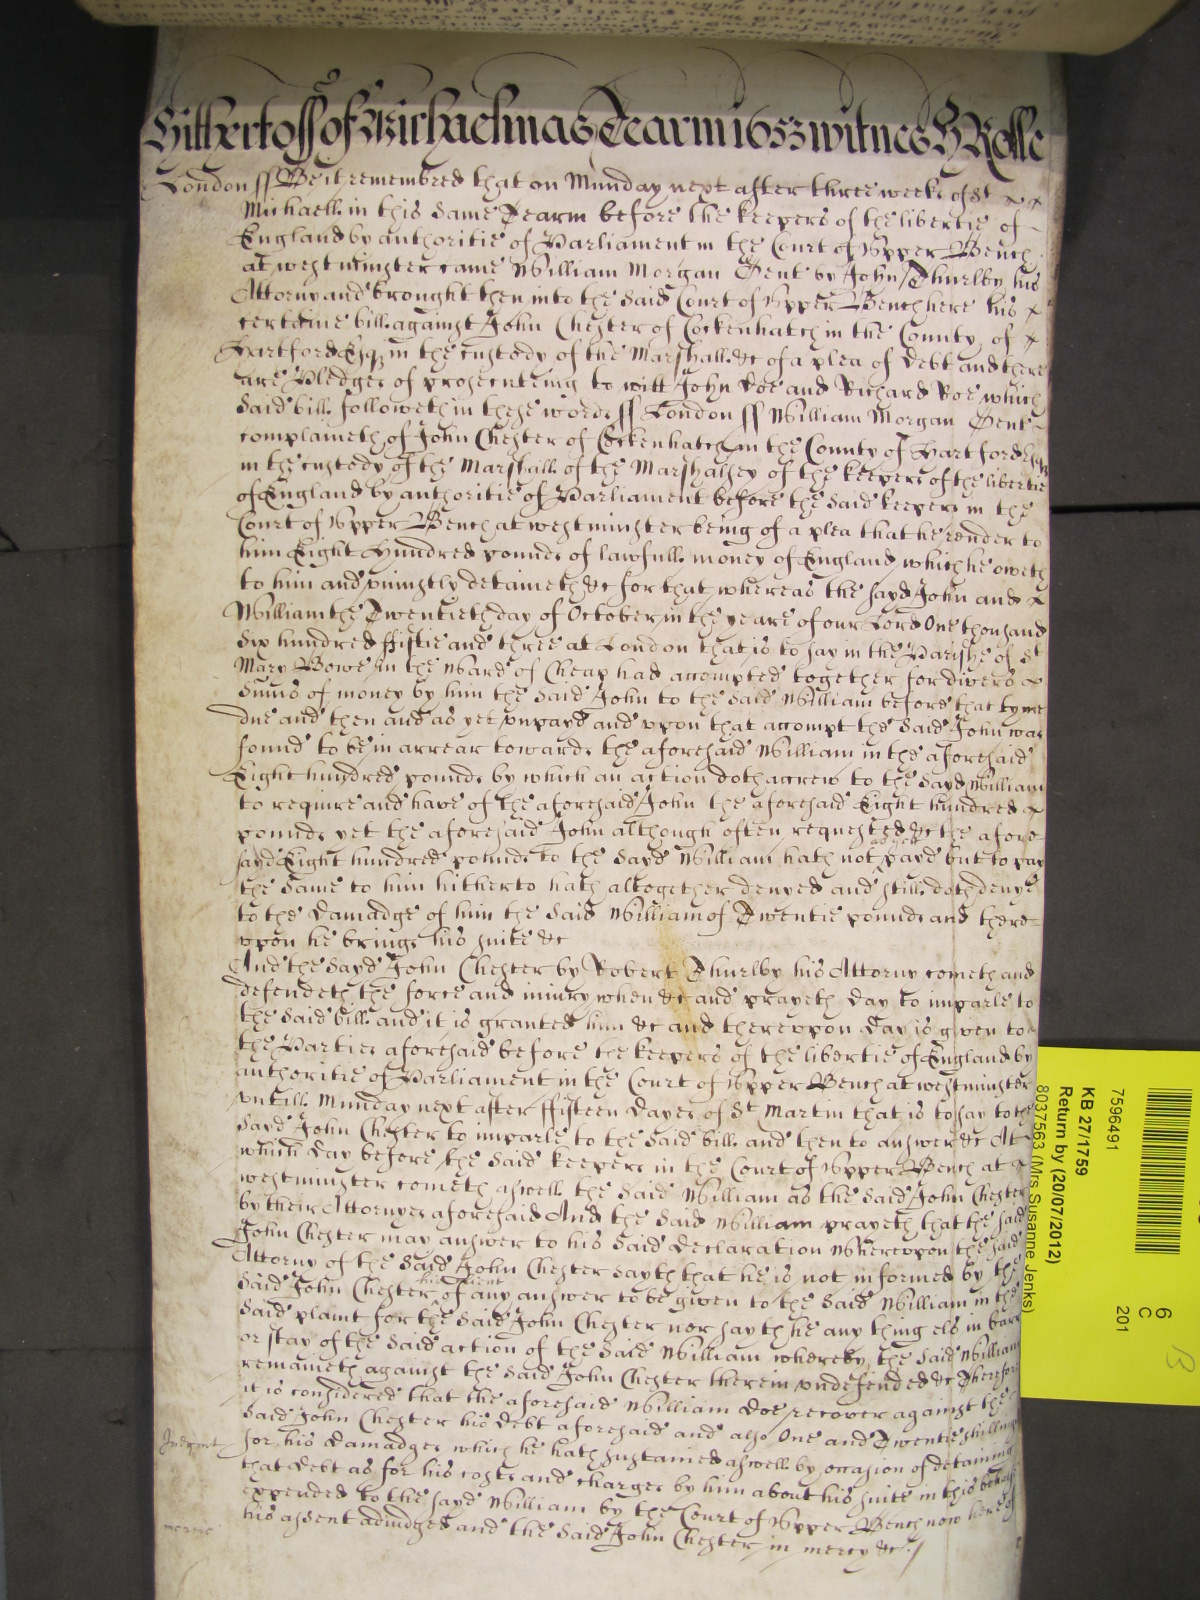 Hitherto ss of Michaelmas Tearm 1653 witnes H Rolle
London ss Be it remembred that on Munday next after three weekes of St
Michaell in this same Tearm before the keepers of the libertie of
England by authoritie of Parliament in the Court of Upper Bench
at westminster came William Morgan Gent by John Thurlby his
Attorny and brought then into the said Court of Upper Bench here his
certeine bill against John Chester of Cockenhatch in the County of
Hartford Esqr in the custody of the Marshall &c of a plea of debt and there
are Pledges of prosecuteing to witt John Doe and Richard Roe which
said bill followeth in these wordes ss London ss William Morgan Gent
complaineth of John Chester of Cockenhatch in the County of Hartford Esqr
in the custody of the Marshall of the Marshalsey of the keepers of the libertie
of England by authoritie of Parliament before the said keepers in the
Court of Upper Bench at westminster being of a plea that he render to
him Eight Hundred pounds of lawfull money of England which he oweth
to him and uniustly detaineth &c for that whereas the sayd John and
William the Twentieth day of October in the yeare of our Lord One thousand
six hundred ffiftie and three at London that is to say in the Parishe of St
Mary Bowe in the Ward of Cheap had accompted together for divers
sums of money by him the said John to the said William before that tyme
due and then and as yet unpayd and upon that accompt the said John was
found to be in arrear towards the aforesaid William in the aforesaid
Eight hundred pounds by which an action doth accrew to the sayd William
to require and have of the aforesaid John the aforesaid Eight hundred
pounds yet the aforesaid John although often requested &c the afore
sayd Eight hundred pounds to the sayd William hath not as yet payd but to pay
the same to him hitherto hath altogether denyed and still doth denye
to the damadge of him the said William of Twentie pounds and there=
upon he brings his suite &c
And the sayd John Chester by Robert Thurlby his Attorny cometh and
defendeth the force and iniury when &c and prayeth day to imparle to
the said bill and it is granted him &c and thereupon day is given to
the Parties aforesaid before the keepers of the libertie of England by
authoritie of Parliament in the Court of Upper Bench at westminster
untill Munday next after ffifteen dayes of St Martin that is to say to the
sayd John Chester to imparle to the said bill and then to answer &c At
which day before the said keepers in the Court of Upper Bench at
westminster cometh aswell the said William as the said John Chester
by their Attornyes aforesaid And the said William prayeth that the said
John Chester may answer to his said declaration Whereupon the said
Attorny of the said John Chester sayth that he is not informed by the
said John Chester his Client of any answer to be given to the said William in the
said plaint for the said John Chester nor sayth he any thing els in barr
or stay of the said action of the said William whereby the said William
remaineth against the said John Chester therein undefended &c Therefore
it is considered that the aforesaid William doe recover against the
said John Chester his debt aforesaid and also One and Twentie shillings
Judgmt for his damadges which he hath sustained aswell by occasion of detaining
that debt as for his costs and charges by him about his suite in this behalf
expended to the sayd William by the Court of Upper Bench now here of
mercie his assent adiudged and the said John Chester in mercy &c
7596491
KB 27/1759
Return by (20/07/2012)
8037563 (Mrs Susanne Jenks)
6
C
201